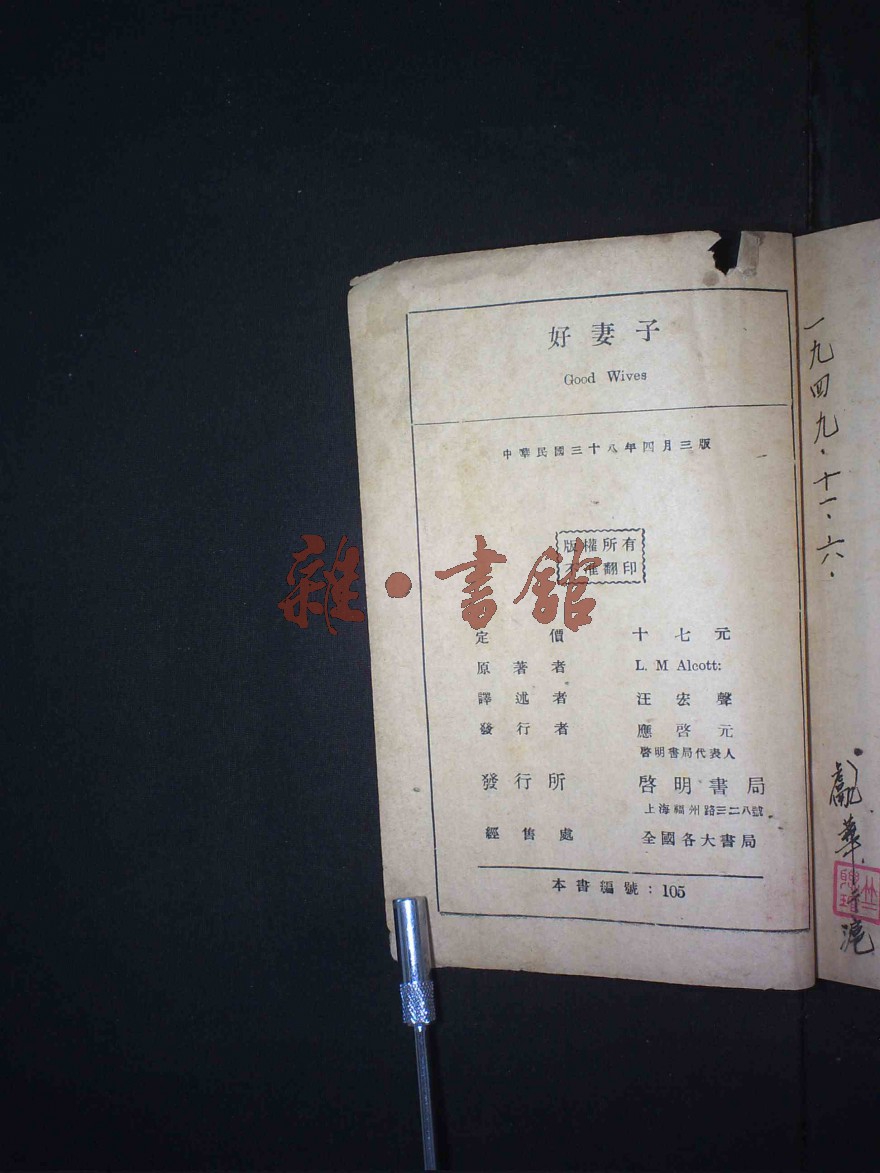 好妻子
Good Wives
中華民國三十八年四月三版
版權所有
不准翻印
定價 十七元
原著者 L. M Alcott:
譯述者 汪宏聲
發行者 應啓元
啓明書局代表人
發行所 啓明書局
上海福州路三二八號
經售處 全國各大書局
本書編號：105
一九四九.十一、六.
雜·書館